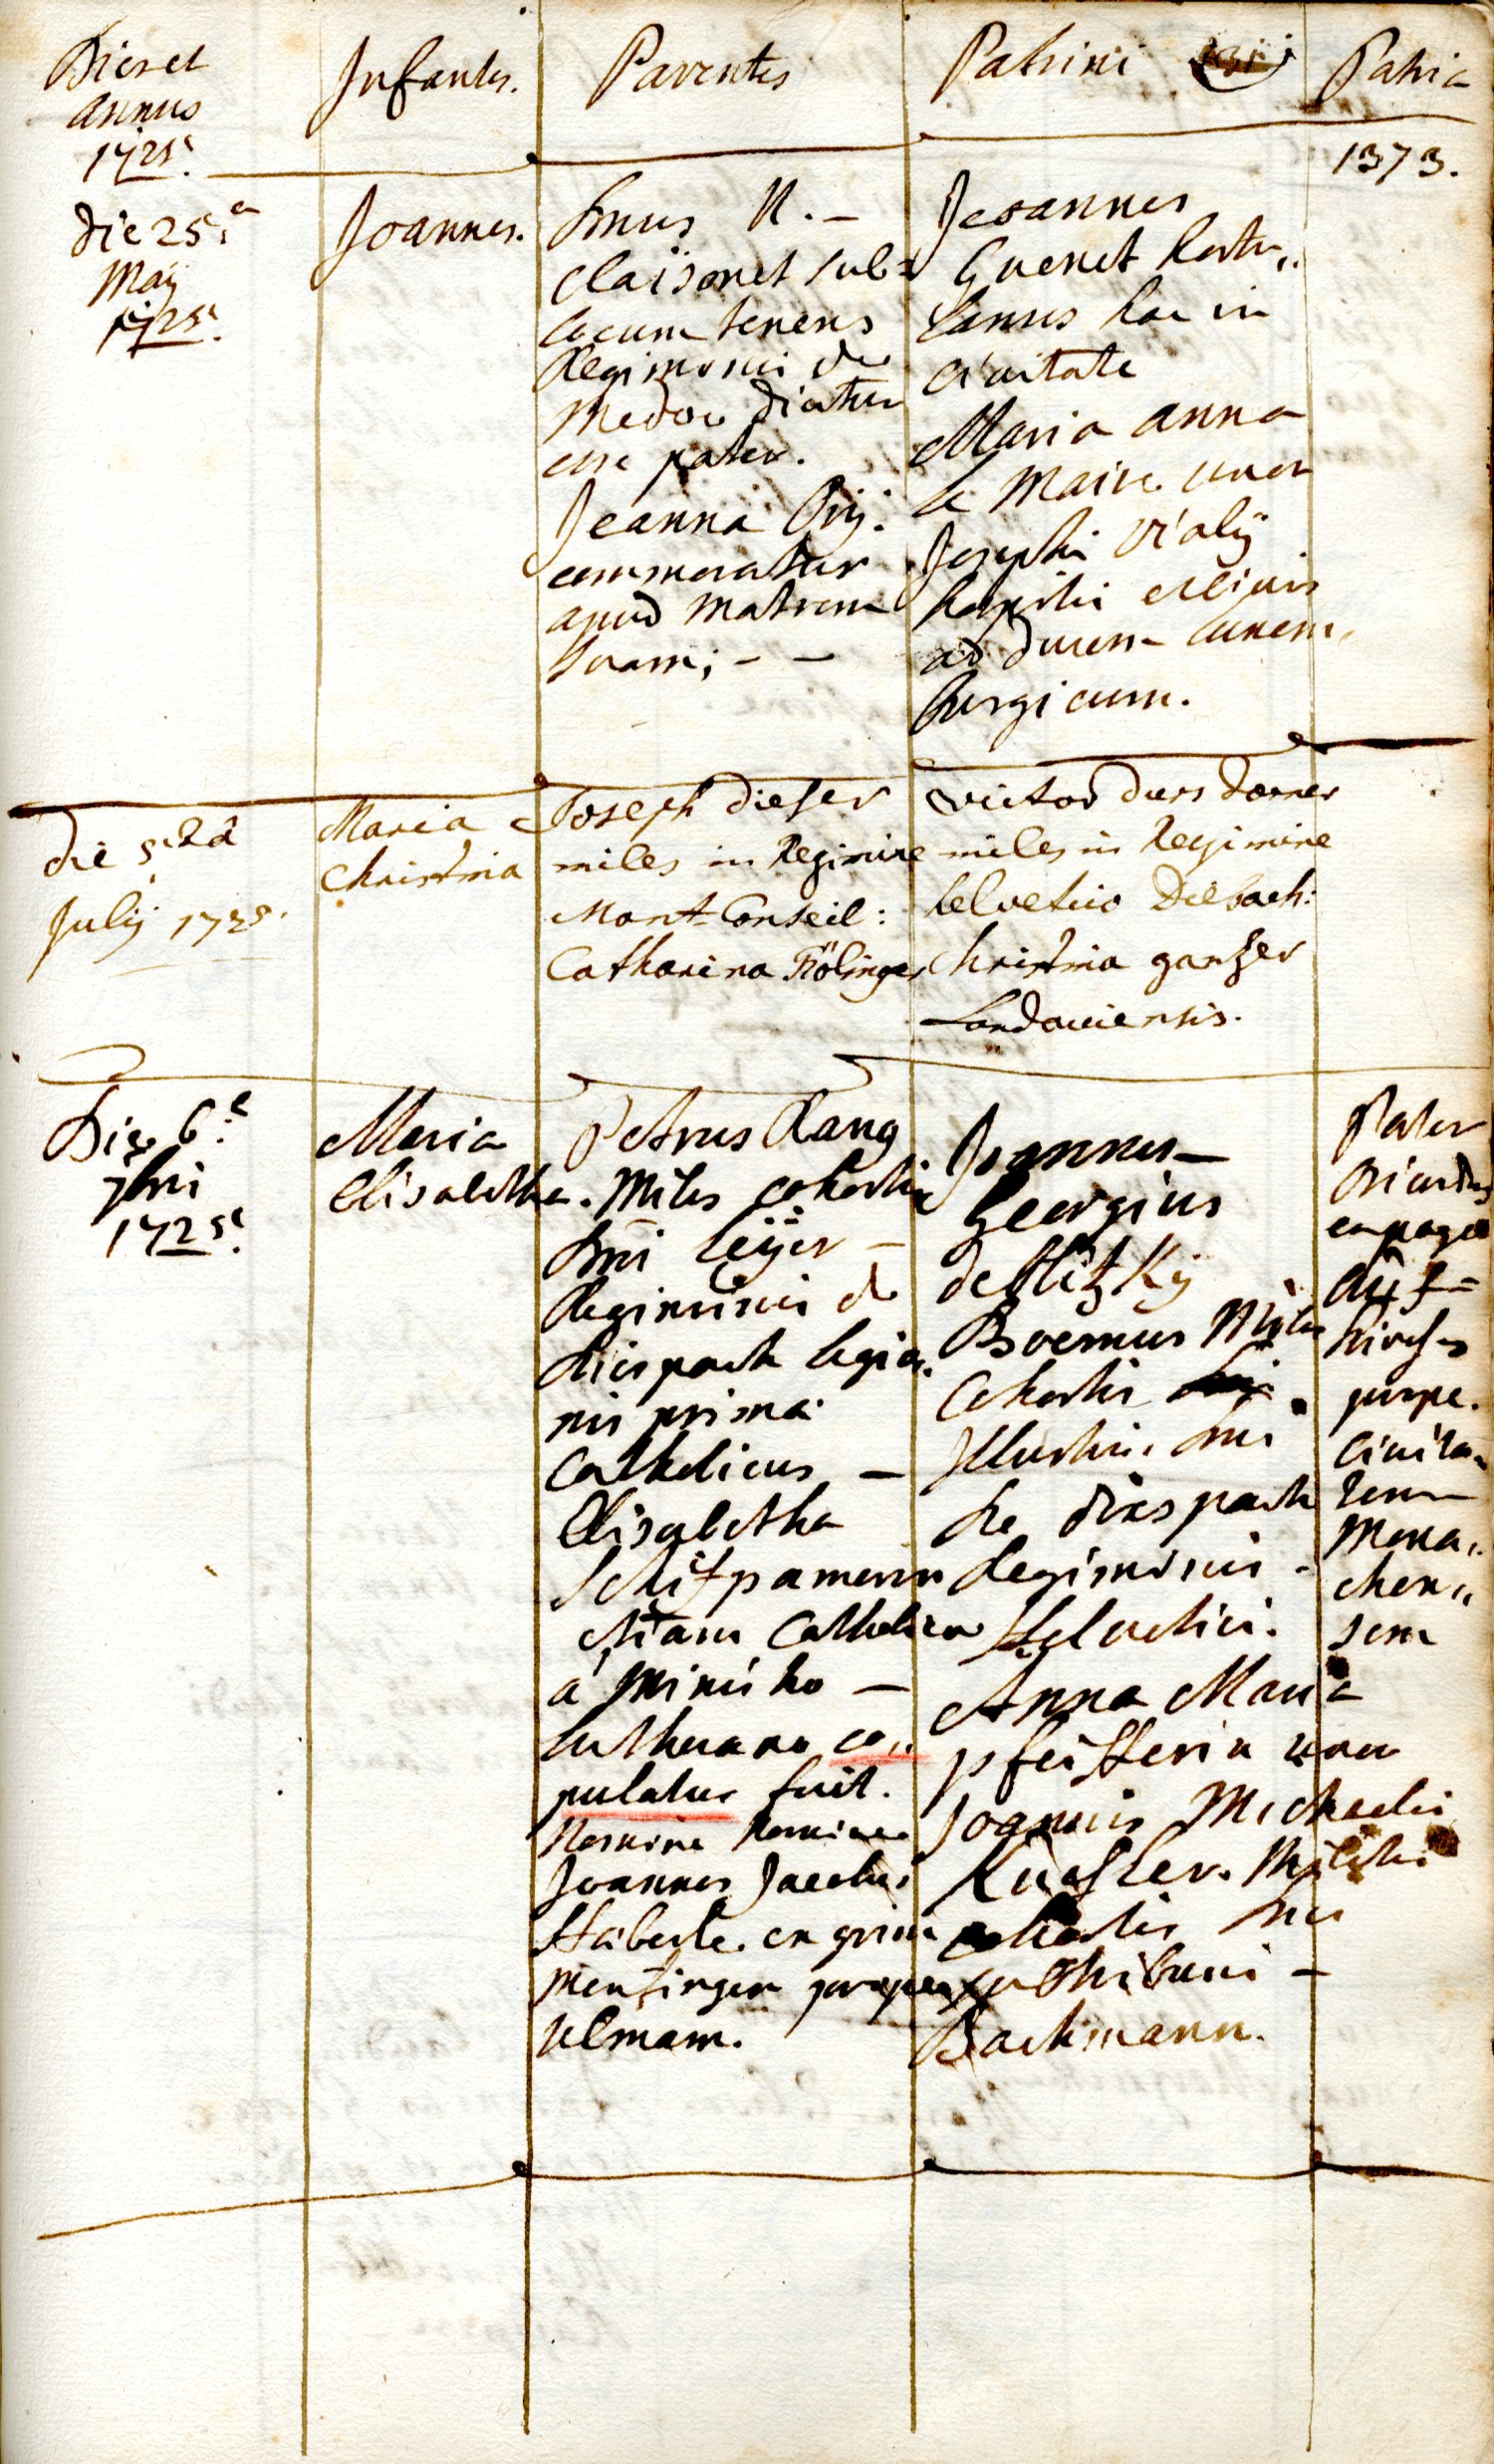 Dies et
annus
1725.
Infantes.
Parentes
Patrini
Patria
1373.
Die 25.a
Maÿ
1725.
Joannes.
Dnus N. –
Claisonet sub=
locum tenens
Regiminis de
Medoc dicitur
esse pater.
Jeanna
commoratur
apud matrem
suam; – –
Joannes
Guenet
hac in
civitate
Maria anna
le Maire uxor
Josephi
ad ducem Luxem„
burgicum.
die 5.ta
Julÿ 1725.
Maria
Christina
Joseph dieser
miles in Regimine
Mont-Conseil:
Catharina Frölinger
victor durs dorner
miles in Regimine
helvetico Diesbach:
Christina gantzer
Landaviensis.
Die 6.a
7bri
1725.
Maria
Elisabetha.
Petrus Rang
Miles cohortis
Dni leÿer –
Regiminis de
Diespach legio„
nis prima
Catholicus –
Elisabetha
etiam Catholica
a Ministro –
lutherano co„
pulatus fuit.
Nomine
Joannes Jacobus
Häberle. ex grim
melfingen prope
Ulmam.
Joannes –
Georgius
Boemus Miles
Cohortis
Illustris. Dni
de diespach
Regiminis –
Helvetici.
Anna Maria
pfeifferin uxor
Joannis Michaelis
Kuesler. Militis
cohortis Dni
Bachmann.
Pater
oriundus
ex pago
auf=
kirchen
prope.
Civita„
tem
Mona„
chen„
sem